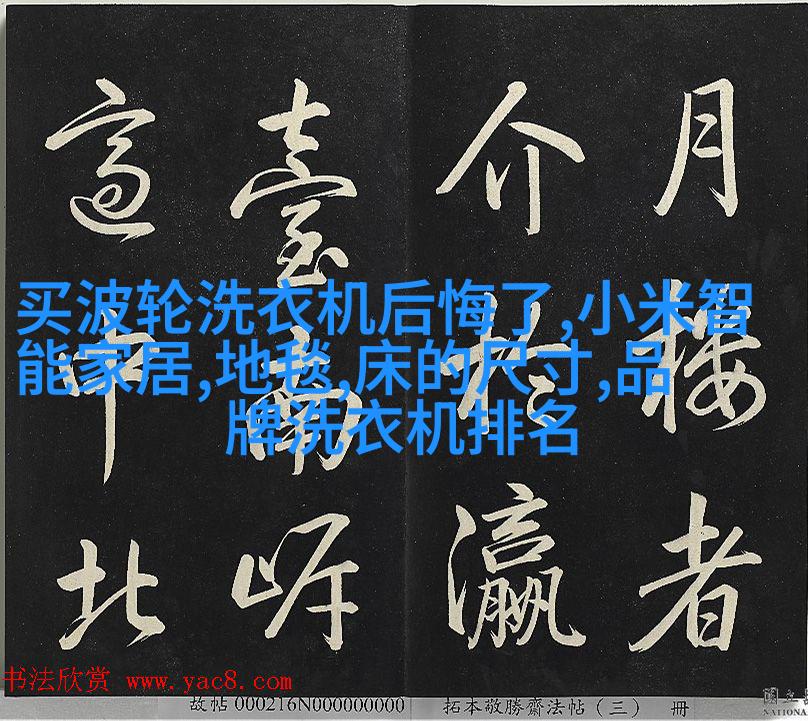 买波轮洗衣机后悔了,小米智
能家居,地毯,床的尺寸,品
牌洗衣机排名
月樓者
介於瀛
臺南岸
適中北
书法欣赏 www.yac8.com
故帖 000216N000000000
拓本敬勝齋法帖（三） 册
國立
NATIONA